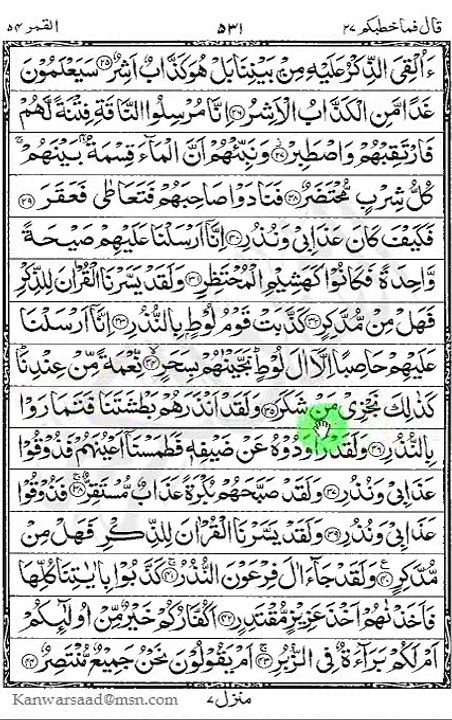 قال فماخطبكم ٢٧ ٥٣١ القمر ٥٤
ءَاُلْقِیَ الذِّكْرُ عَلَیْهِ مِنْۢ بَیْنِنَا بَلْ هُوَ كَذَّابٌ اَشِرٌ ٢٥ سَیَعْلَمُوْنَ
غَدًا مَّنِ الْكَذَّابُ الْاَشِرُ ٢٦ اِنَّا مُرْسِلُوا النَّاقَةِ فِتْنَةً لَّهُمْ
فَارْتَقِبْهُمْ وَاصْطَبِرْ ٢٧ وَنَبِّئْهُمْ اَنَّ الْمَآءَ قِسْمَةٌۢ بَیْنَهُمْ
كُلُّ شِرْبٍ مُّحْتَضَرٌ ٢٨ فَنَادَوْا صَاحِبَهُمْ فَتَعَاطٰی فَعَقَرَ ٢٩
فَكَیْفَ كَانَ عَذَابِیْ وَنُذُرِ ٣٠ اِنَّاۤ اَرْسَلْنَا عَلَیْهِمْ صَیْحَةً
وَّاحِدَةً فَكَانُوْا كَهَشِیْمِ الْمُحْتَظِرِ ٣١ وَلَقَدْ یَسَّرْنَا الْقُرْاٰنَ لِلذِّكْرِ
فَهَلْ مِنْ مُّدَّكِرٍ ٣٢ كَذَّبَتْ قَوْمُ لُوْطٍۭ بِالنُّذُرِ ٣٣ اِنَّاۤ اَرْسَلْنَا
عَلَیْهِمْ حَاصِبًا اِلَّاۤ اٰلَ لُوْطٍ نَجَّیْنٰهُمْ بِسَحَرٍ ٣٤ نِّعْمَةً مِّنْ عِنْدِنَا
كَذٰلِكَ نَجْزِیْ مَنْ شَكَرَ ٣٥ وَلَقَدْ اَنْذَرَهُمْ بَطْشَتَنَا فَتَمَارَوْا
بِالنُّذُرِ ٣٦ وَلَقَدْ رَاوَدُوْهُ عَنْ ضَیْفِهٖ فَطَمَسْنَاۤ اَعْیُنَهُمْ فَذُوْقُوْا
عَذَابِیْ وَنُذُرِ ٣٧ وَلَقَدْ صَبَّحَهُمْ بُكْرَةً عَذَابٌ مُّسْتَقِرٌّ ٣٨ فَذُوْقُوْا
عَذَابِیْ وَنُذُرِ ٣٩ وَلَقَدْ یَسَّرْنَا الْقُرْاٰنَ لِلذِّكْرِ فَهَلْ مِنْ
مُّدَّكِرٍ ٤٠ وَلَقَدْ جَآءَ اٰلَ فِرْعَوْنَ النُّذُرُ ٤١ كَذَّبُوْا بِاٰیٰتِنَا كُلِّهَا
فَاَخَذْنٰهُمْ اَخْذَ عَزِیْزٍ مُّقْتَدِرٍ ٤٢ اَكُفَّارُكُمْ خَیْرٌ مِّنْ اُولٰٓئِكُمْ
اَمْ لَكُمْ بَرَآءَةٌ فِی الزُّبُرِ ٤٣ اَمْ یَقُوْلُوْنَ نَحْنُ جَمِیْعٌ مُّنْتَصِرٌ ٤٤
منزل ٧
Kanwarsaad@msn.com